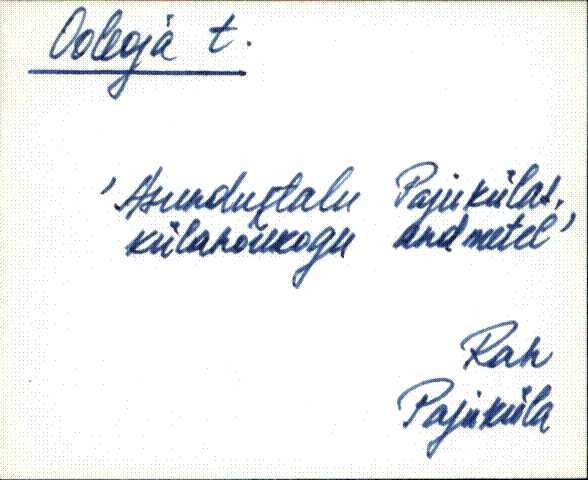 Ooleojä t.
'Asundustalu Pajukülas,
külanõukogu andmetel'
Rah
Pajuküla